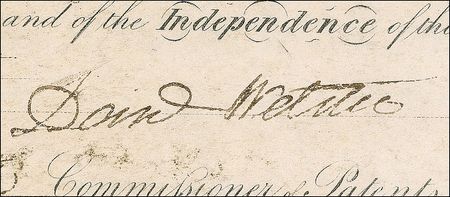 and of the Independence of the
Danl Webster
Commissioner of Patents